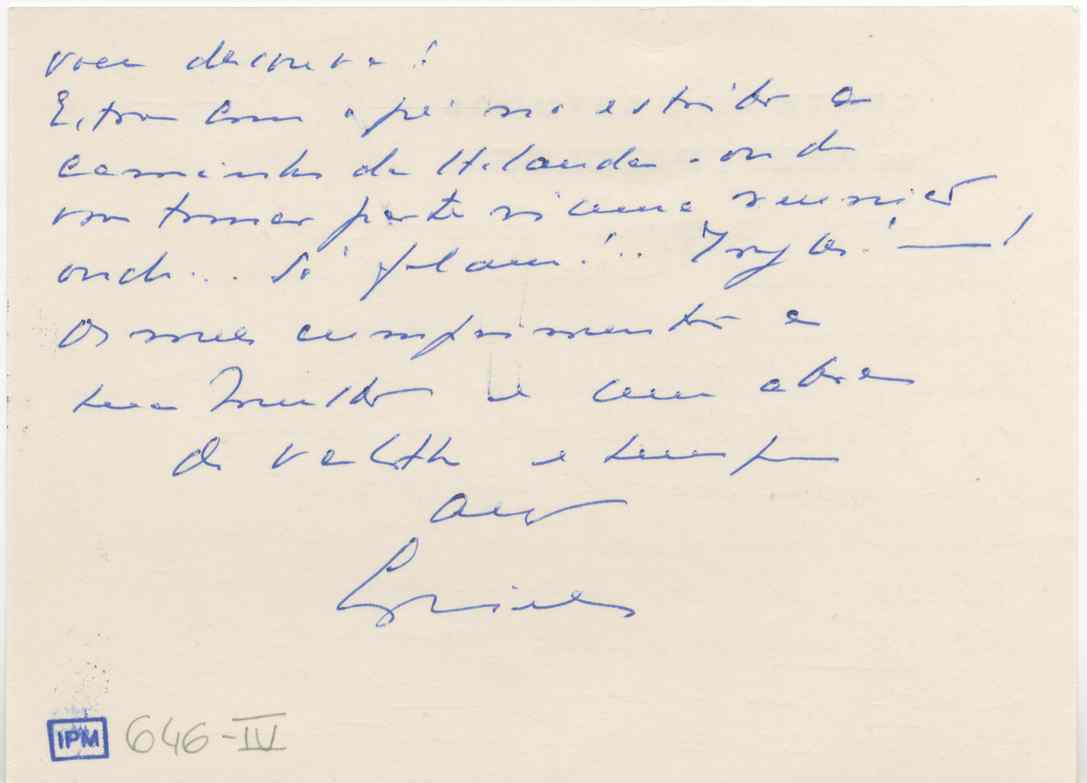 Estou com o pé no estribo a
caminho da Holanda - onde
vou tomar parte numa reunião
onde... Só falam!... Inglês!
Os meus cumprimentos a
sua Mulher e um abraço
do velho e sempre
amº
IPM 646-IV